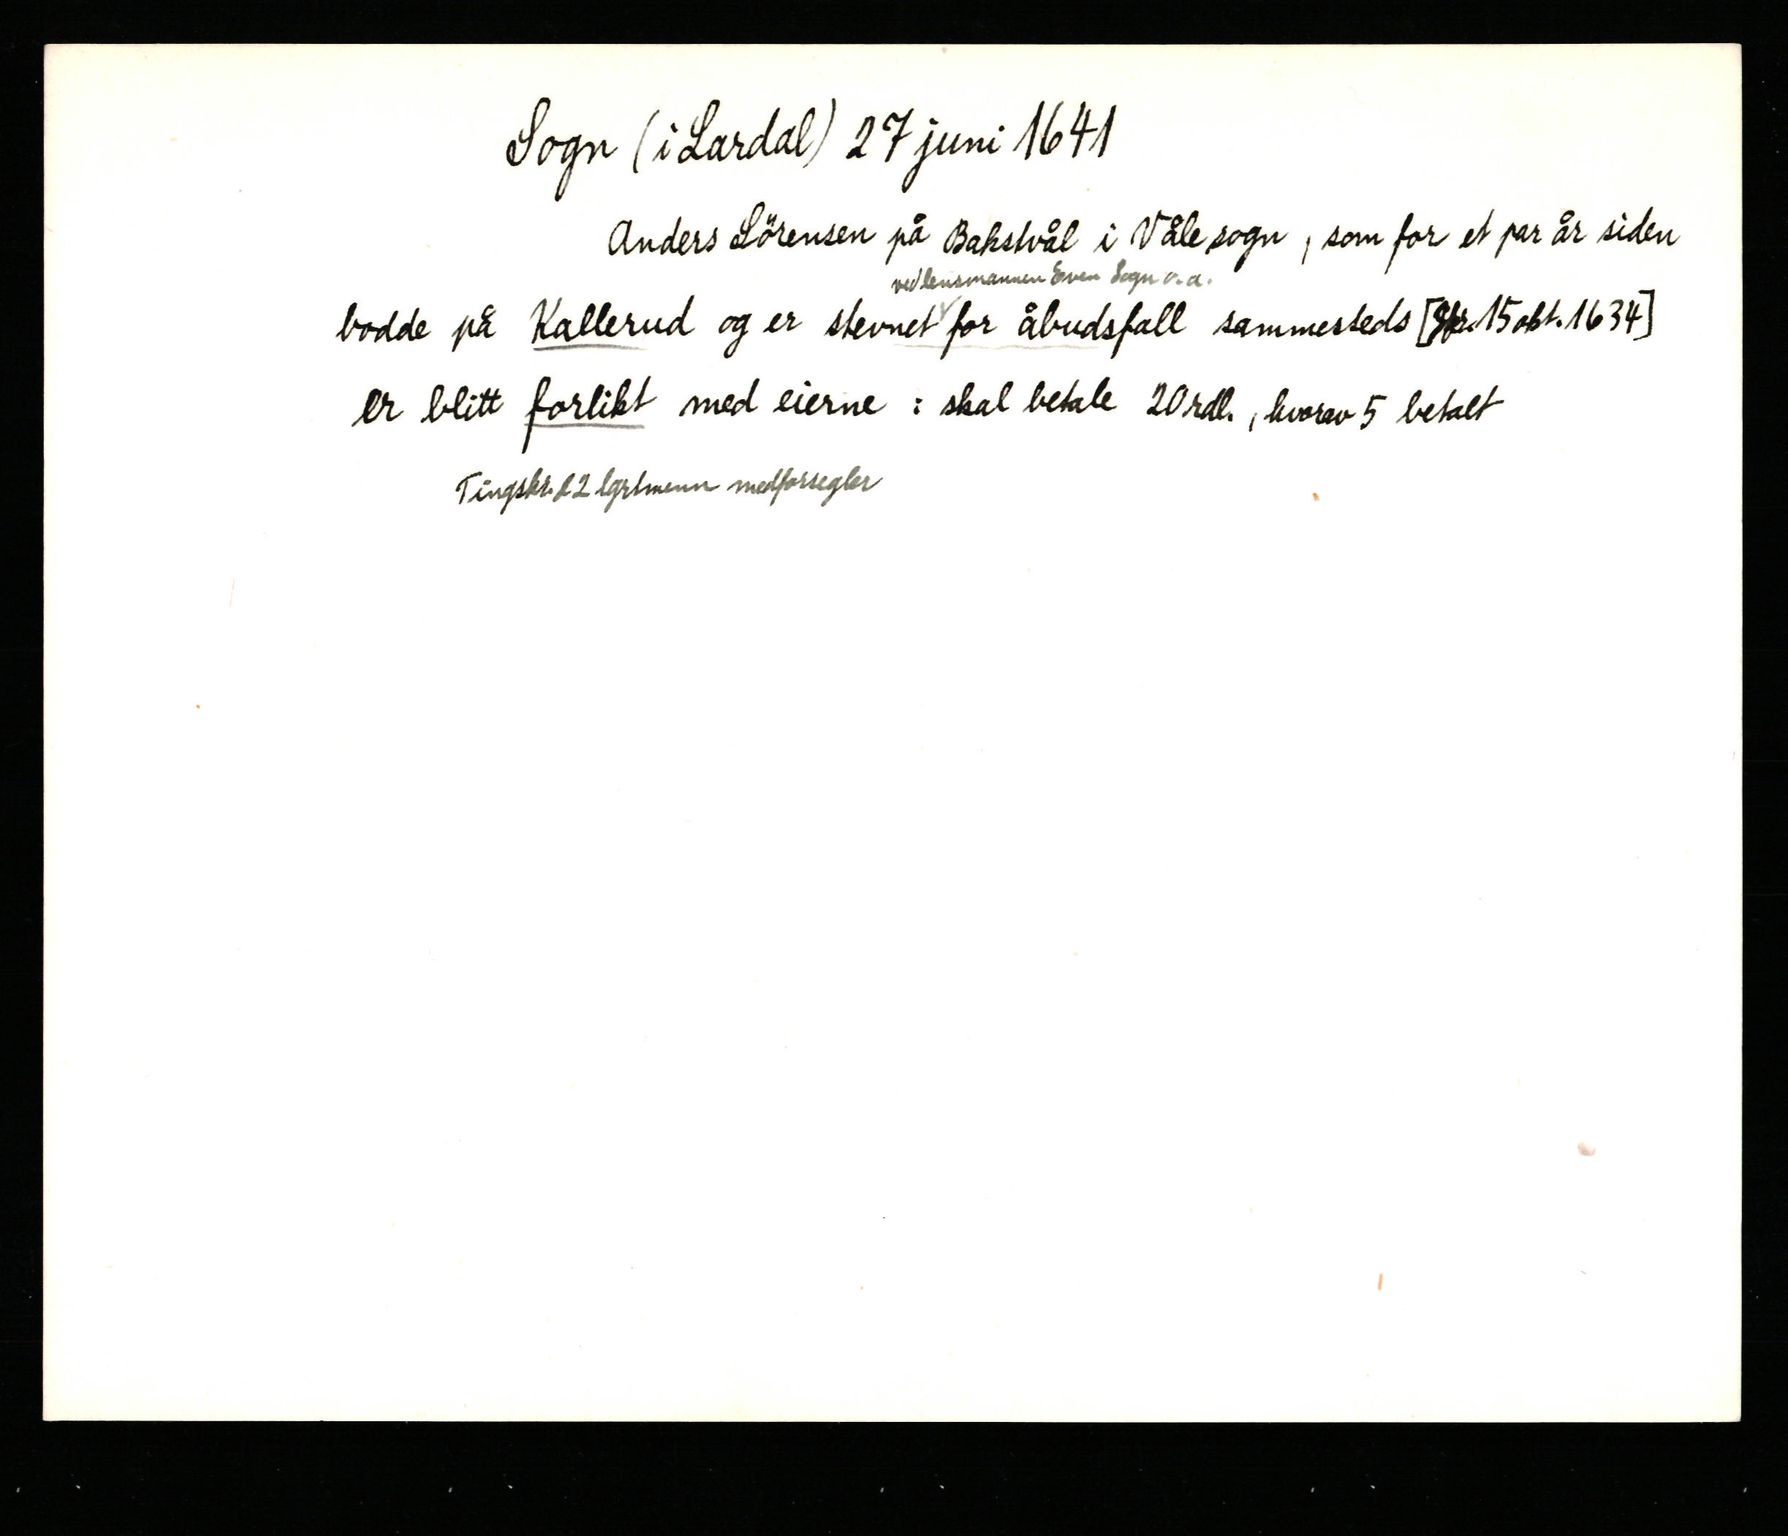 Sogn (i Lardal) 27 juni 1641
Anders Sörensen på Bakstvål i Våle sogn, som for et par år siden
ved lensmannen Even Sogn o.a.
bodde på Kallerud og er stevnet for åbudsfall sammesteds [Skr. 15 okt. 1634]
er blitt forlikt med eierne : skal betale 20 rdl., hvorav 5 betalt
Tingskr. & 2 lgrtmenn medforsegler